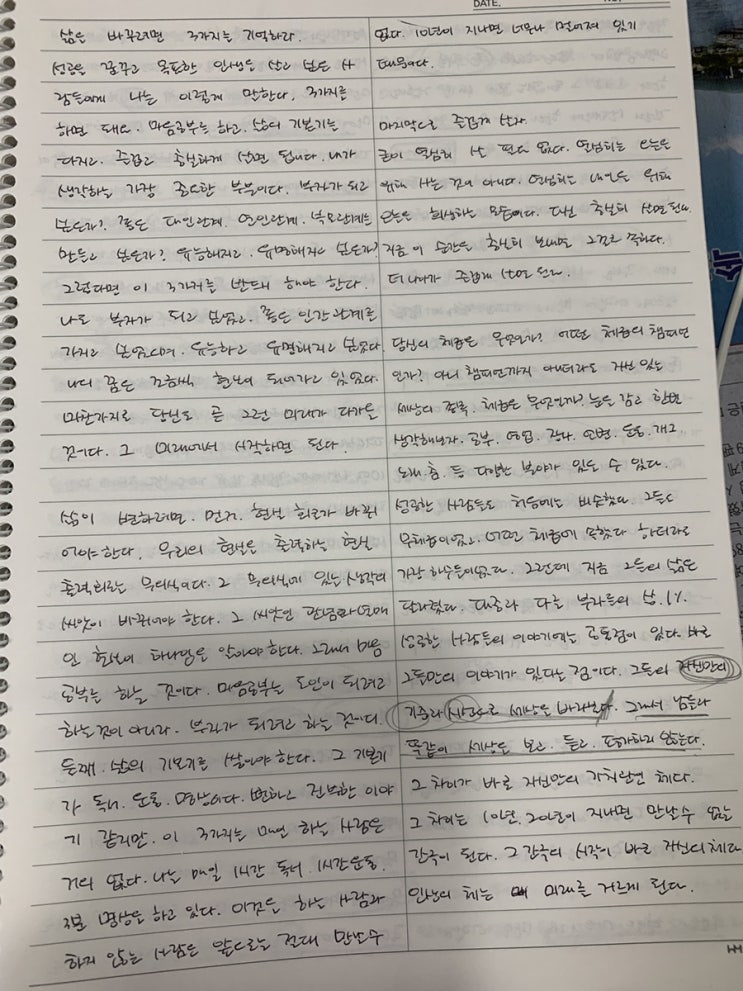 DATE.
삶은 바꾸려면 3가지는 기억하라.
성공을 꿈꾸고 윤택한 인생을 살고 싶은 사
람들에게 나는 이렇게 말한다. 3가지를
하면 돼요. 마음공부를 하고, 삶의 기본기를
다지고, 즐겁고 충실하게 살면 됩니다. 내가
생각하는 가장 중요한 부분이다. 부자가 되고
싶은가? 좋은 대인관계, 연인관계, 부모관계를
만들고 싶은가? 유능해지고, 유명해지고 싶은가?
그렇다면 이 3가지를 반드시 해야 한다.
나도 부자가 되고 싶었고, 좋은 인간관계를
가지고 싶었으며, 유능하고 유명해지고 싶었다
나의 꿈은 조금씩 현실이 되어가고 있었다.
마찬가지로 당신도 곧 그런 미래가 다가올
것이다. 그 미래에서 시작하면 된다.
삶이 변하려면, 먼저, 현실 회로가 바뀌
어야한다. 우리의 현실은 출력하는 현실
출력회로는 무의식이다. 그 무의식에 있는 생각의
씨앗이 바뀌어야 한다. 그 씨앗인 관념화
인 현실이 타나남을 알아야 한다. 그래서 마음
공부를 하는 것이다. 마음공부는 도인이 되려고
하는것이 아니라, 부자가 되려고 하는 것이다.
둘째, 삶의 기본기를 쌓아야 한다. 그 기본기
가 독서, 운동, 명상이다. 뻔하고 진부한 이야
기 같지만, 이 3가지를 매일 하는 사람은
거의 없다. 나는 매일 1시간 독서, 1시간운동,
3분 명상을 하고 있다. 이것은 하는 사람과
하지 않는 사람은 앞으로는 절대 만날수
없다. 10년이 지나면 너무나 멀어져 있기
때문이다.
마지막으로 즐겁게 살자.
굳이 열심히 살 필요 없다. 열심히는 오늘은
위해 사는 것이 아니다. 열심히는 내일은 위해
오늘은 희생하는 모습이다. 대신 충실히 살면 된다.
지금 이 순간은 충실히 보내도 그걸로 족하다.
더 나아가 즐겁게 살으면 된다.
당신의 체급은 무엇인가? 어떤 체급의 챔피언
인가? 아니 챔피언까지 아니더라도 자신 있는
세상의 종목, 체급은 무엇인가? 눈을 감고 한번
생각해보자. 공부, 영업, 강의, 언변, 운동, 개그
노래, 춤, 등 다양한 분야가 있을 수 있다.
성공한 사람들도 처음에는 비슷했다. 그들도
무체급이었고, 어떤 체급에 속했다 하더라도
가장 하수들이었다. 그런데 지금 그들의 삶은
달라졌다. 대중과 다른 부자들의 삶. 1%
성공한 사람들의 이야기에는 공통점이 있다. 바로
그들만의 이야기가 있다는 점이다. 그들의 자신만의
기준과 시선으로 세상을 바라본다. 그래서 남들과
똑같이 세상을 보고, 듣고, 도하지 않는다.
그 차이가 바로 자신만의 가치관인 체다.
그 차이는 10년, 20년이 지나면 만날수 없는
간극이 된다. 그 간극의 시작이 바로 자신의 체다
인생의 체는 미래를 거르게 된다.